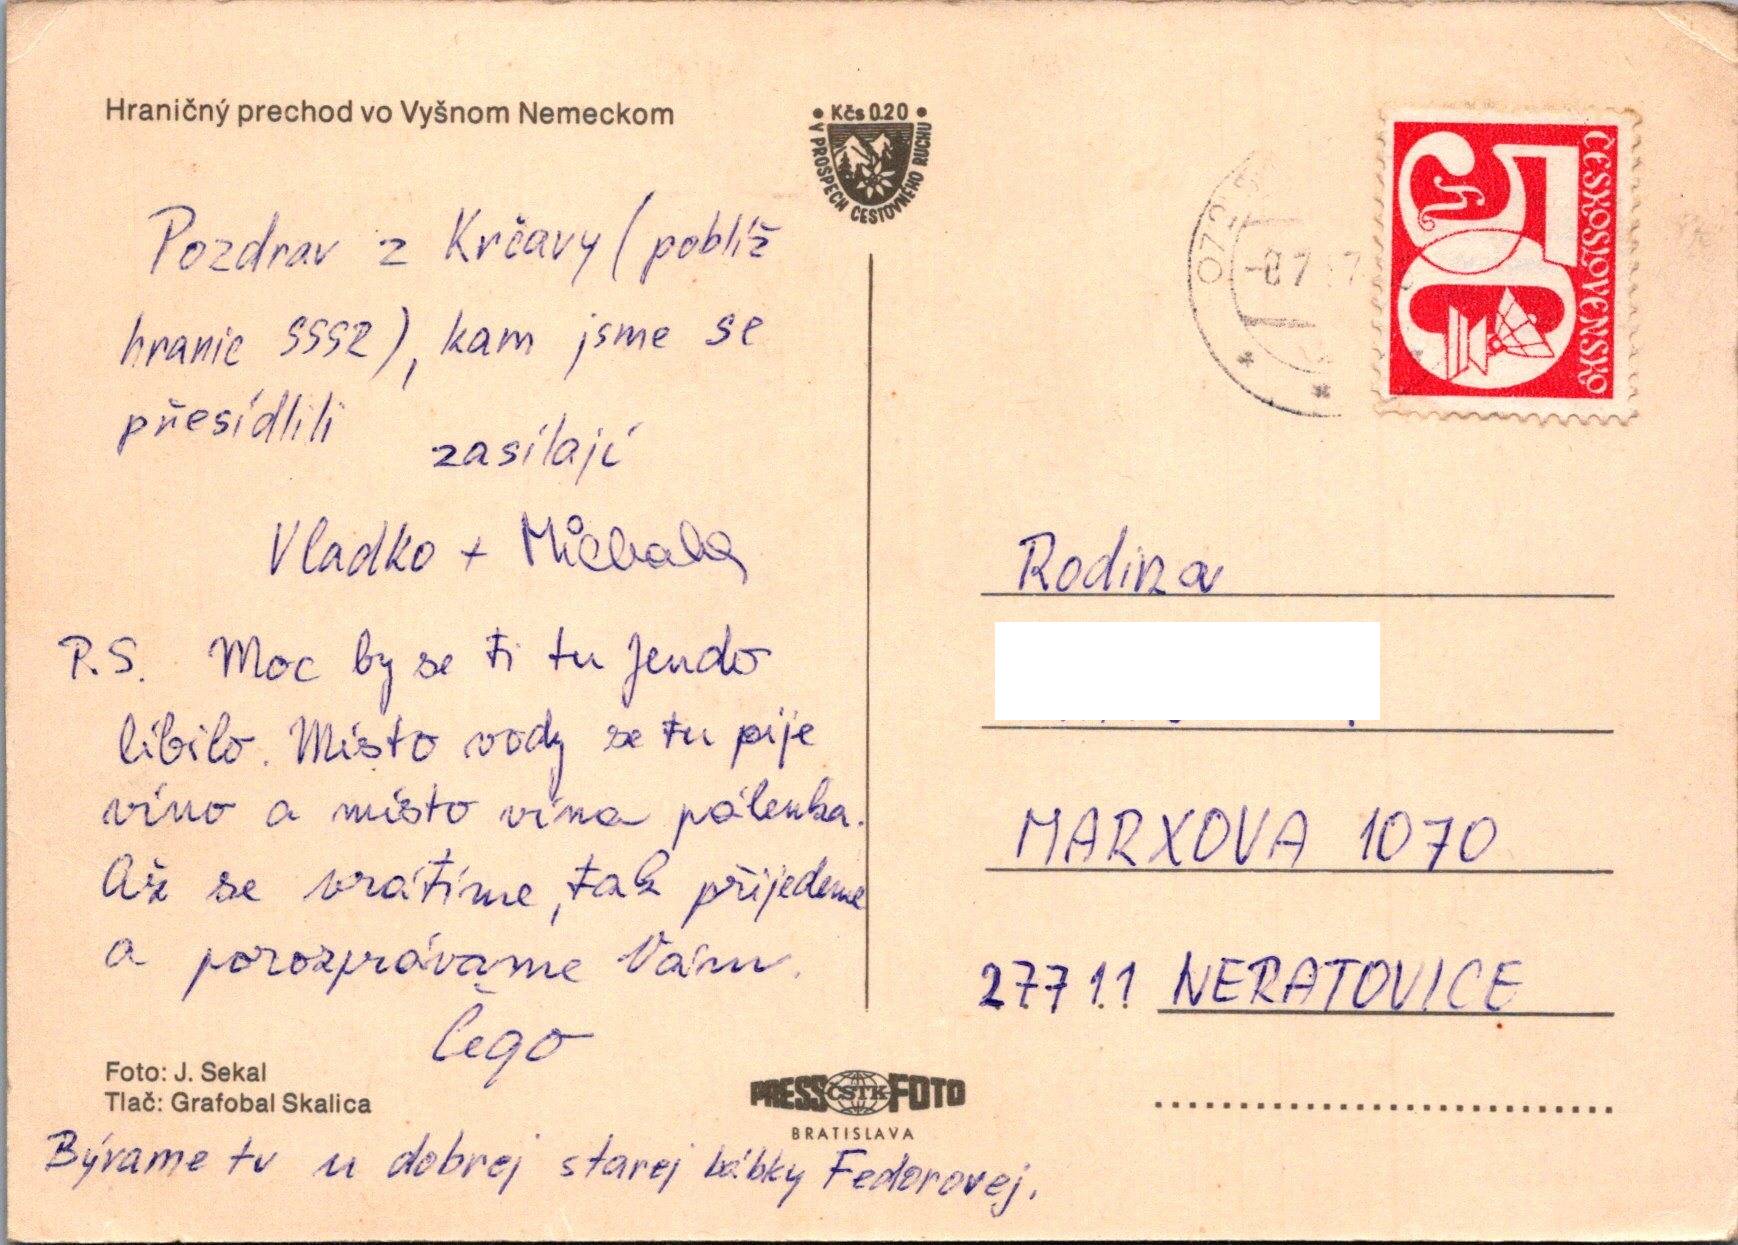 Hraničný prechod vo Vyšnom Nemeckom
• Kčs 0.20 •
V PROSPECH CESTOVNÉHO RUCHU
Pozdrav z Krčavy (poblíž
hranic SSSR), kam jsme se
přesídlili
zasílají
Vladko + Michala
P.S. Moc by se ti tu Jendo
líbilo. Místo vody se tu pije
víno a místo vína pálenka.
Až se vrátíme, tak přijedeme
a porozprávame Vám.
Čego
Foto: J. Sekal
Tlač: Grafobal Skalica
PRESS ČSTK FOTO
BRATISLAVA
Bývame tu u dobrej starej bábky Fedorovej.
ČESKOSLOVENSKO
50
h
Rodina
MARXOVA 1070
277 11 NERATOVICE